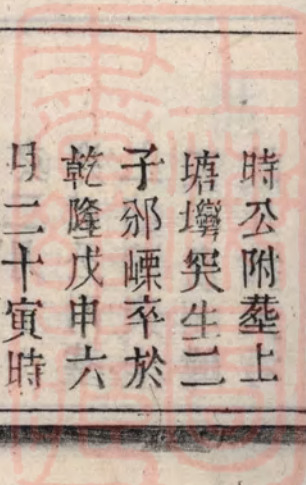 時公附塟上
塘塆癸生二
子邠㟳卒於
乾隆戊申六
月二十寅時